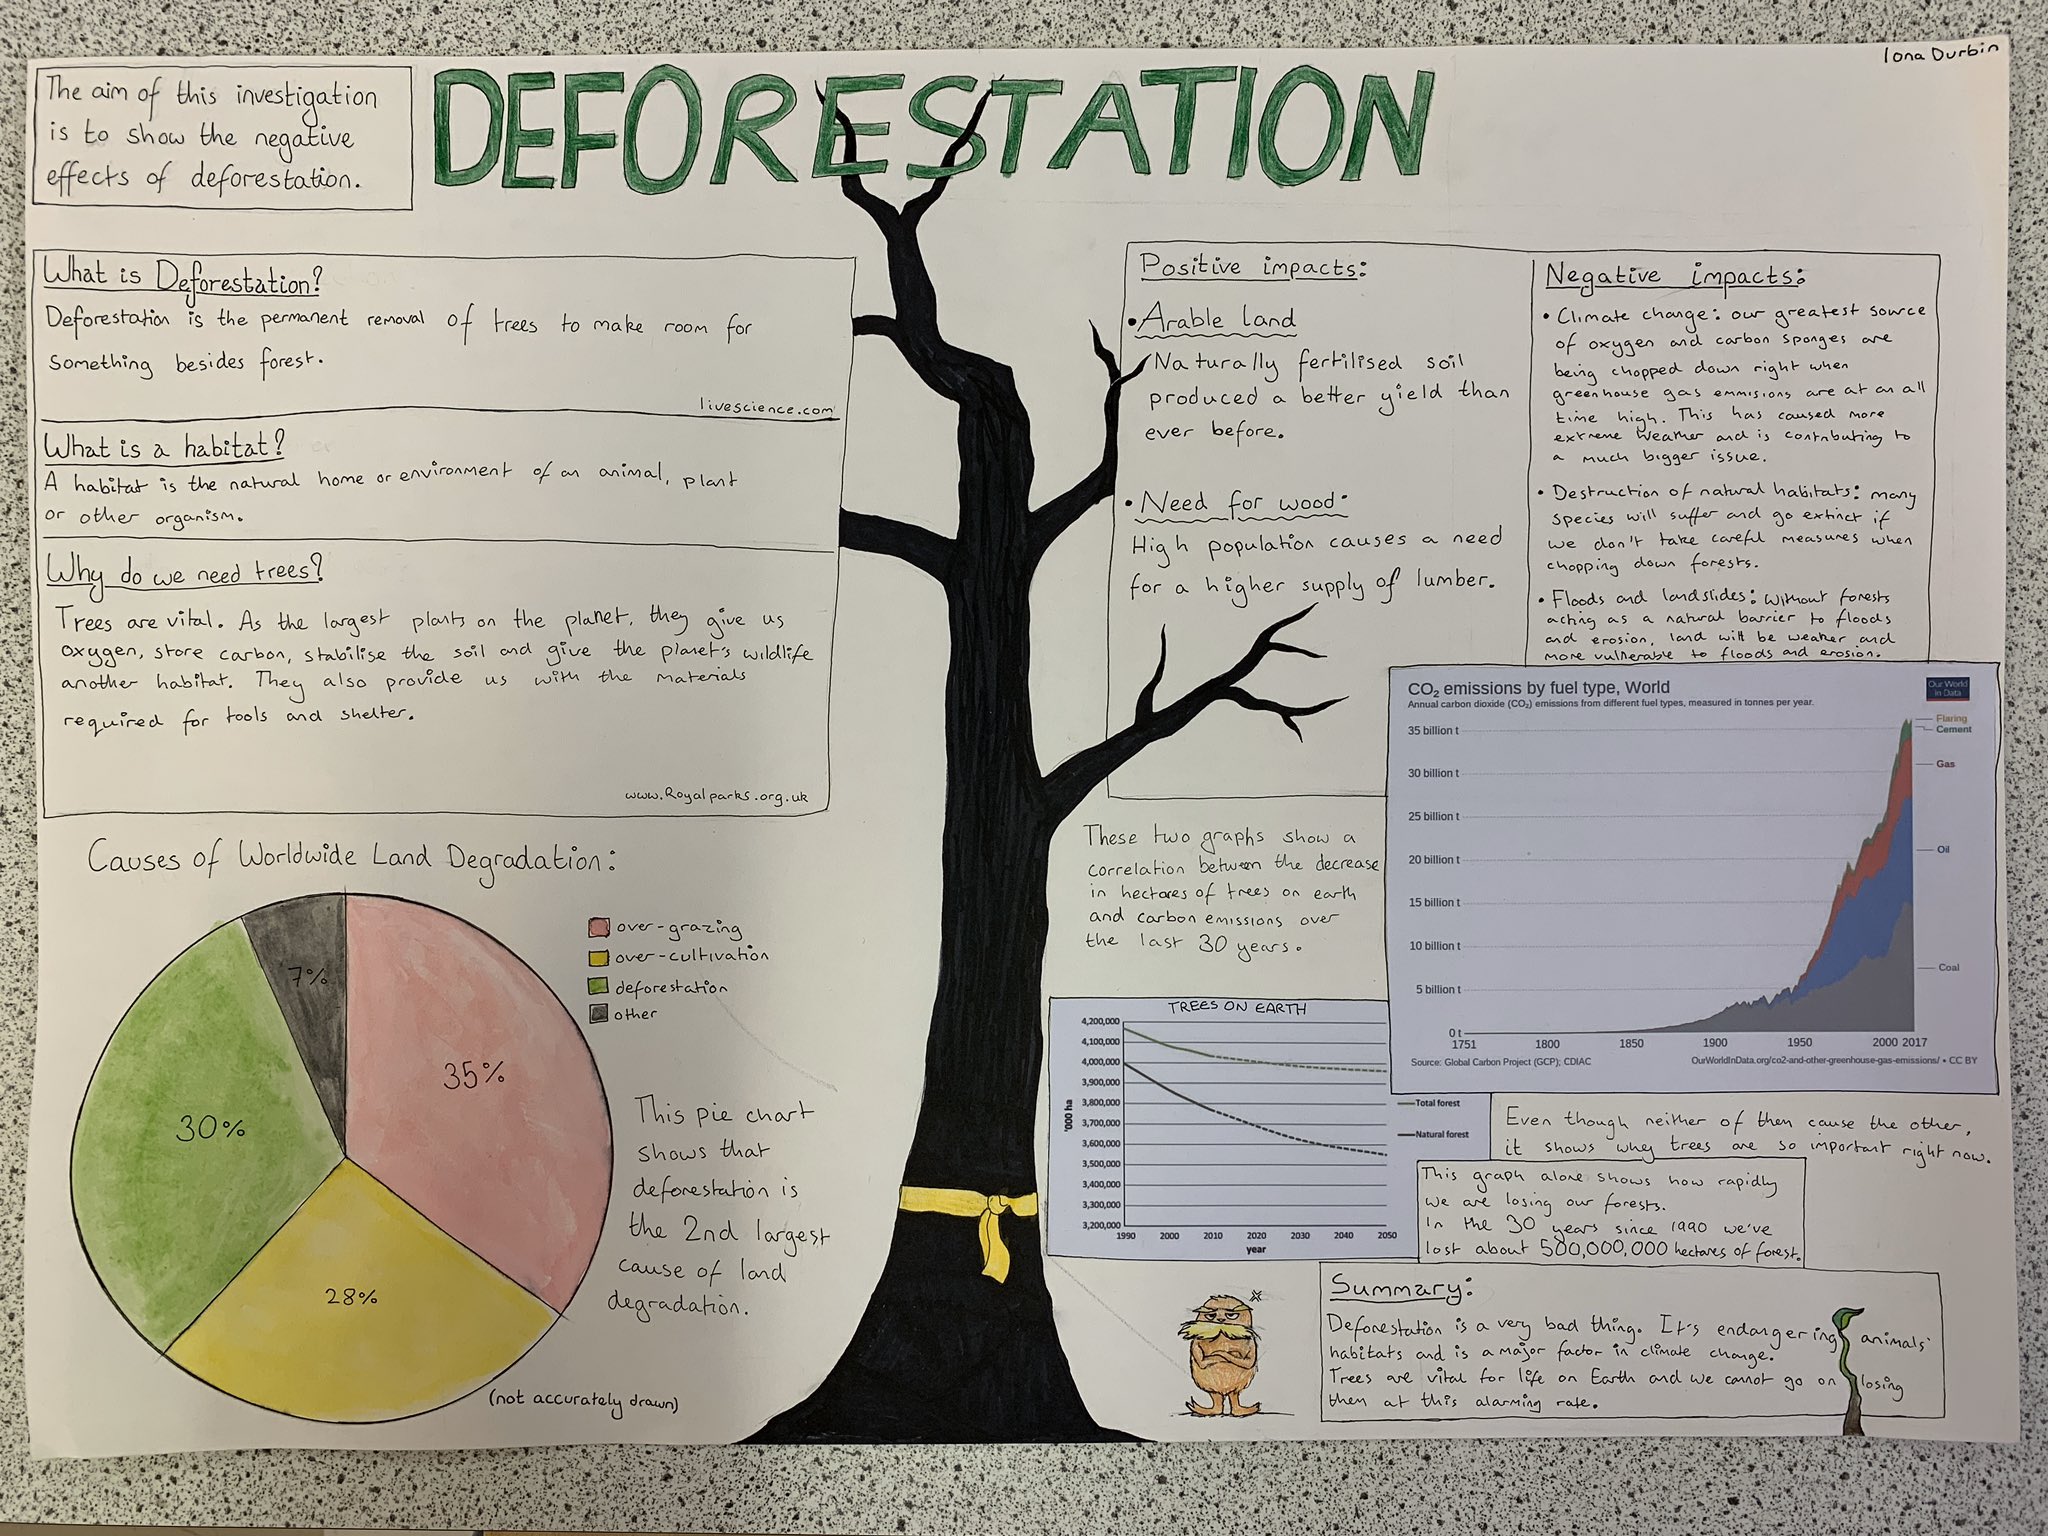 Iona Durbin
The aim of this investigation
is to show the negative
effects of deforestation.
DEFORESTATION
What is Deforestation?
Deforestation is the permanent removal of trees to make room for
something besides forest.
livescience.com
What is a habitat?
A habitat is the natural home or environment of an animal, plant
or other organism.
Why do we need trees?
Trees are vital. As the largest plants on the planet, they give us
oxygen, store carbon, stabilise the soil and give the planet's wildlife
another habitat. They also provide us with the materials
required for tools and shelter.
www.Royalparks.org.uk
Positive impacts:
• Arable land
Naturally fertilised soil
produced a better yield than
ever before.
• Need for wood:
High population causes a need
for a higher supply of lumber.
Negative impacts:
• Climate change: our greatest source
of oxygen and carbon sponges are
being chopped down right when
greenhouse gas emmisions are at an all
time high. This has caused more
extreme weather and is contributing to
a much bigger issue.
• Destruction of natural habitats: many
species will suffer and go extinct if
we don't take careful measures when
chopping down forests.
• Floods and landslides: without forests
acting as a natural barrier to floods
and erosion, land will be weaker and
more vulnerable to floods and erosion.
Causes of Worldwide Land Degradation:
over-grazing
over-cultivation
deforestation
other
7%
35%
30%
28%
This pie chart
shows that
deforestation is
the 2nd largest
cause of land
degradation.
(not accurately drawn)
These two graphs show a
correlation between the decrease
in hectares of trees on earth
and carbon emissions over
the last 30 years.
CO₂ emissions by fuel type, World
Annual carbon dioxide (CO₂) emissions from different fuel types, measured in tonnes per year.
Our World
in Data
35 billion t
30 billion t
25 billion t
20 billion t
15 billion t
10 billion t
5 billion t
0 t
Flaring
Cement
Gas
Oil
Coal
1751 1800 1850 1900 1950 2000 2017
Source: Global Carbon Project (GCP); CDIAC
OurWorldInData.org/co2-and-other-greenhouse-gas-emissions/ • CC BY
TREES ON EARTH
4,200,000
4,100,000
4,000,000
3,900,000
3,800,000
3,700,000
3,600,000
3,500,000
3,400,000
3,300,000
3,200,000
'000 ha
1990 2000 2010 2020 2030 2040 2050
year
Total forest
Natural forest
Even though neither of them cause the other,
it shows why trees are so important right now.
This graph alone shows how rapidly
we are losing our forests.
In the 30 years since 1990 we've
lost about 500,000,000 hectares of forest.
Summary:
Deforestation is a very bad thing. It's endangering animals'
habitats and is a major factor in climate change.
Trees are vital for life on Earth and we cannot go on losing
them at this alarming rate.